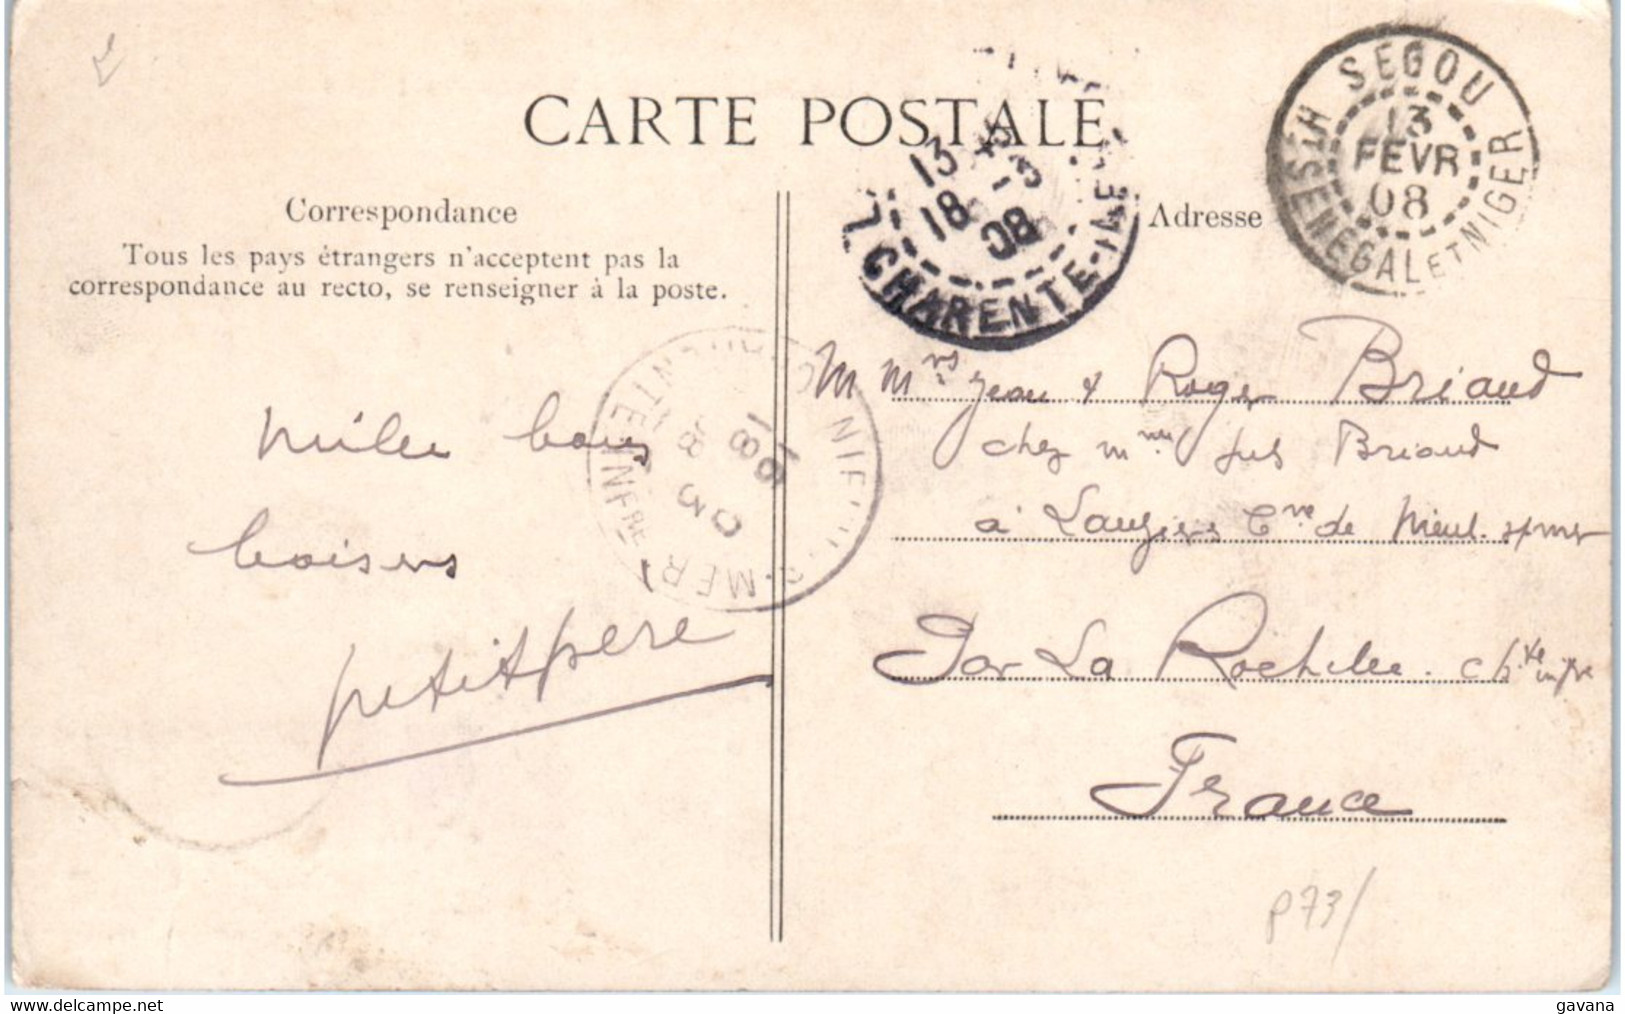 CARTE POSTALE
Correspondance
Tous les pays étrangers n'acceptent pas la
correspondance au recto, se renseigner à la poste.
Adresse
SEGOU
13
FEVR
08
HT SENEGAL ET NIGER
13 15
18 - 3
08
CHARENTE-INFE
18
8 3
09
S-MER
CHARENTE INFRE
Mille bons
baisers
petitpère
M Mrs Jean & Roger Briand
chez Mme Briand
à Lauzières Cne de Nieul s/mer
Par La Rochelle. Chte infre
France
p73/
delcampe.net
gavana